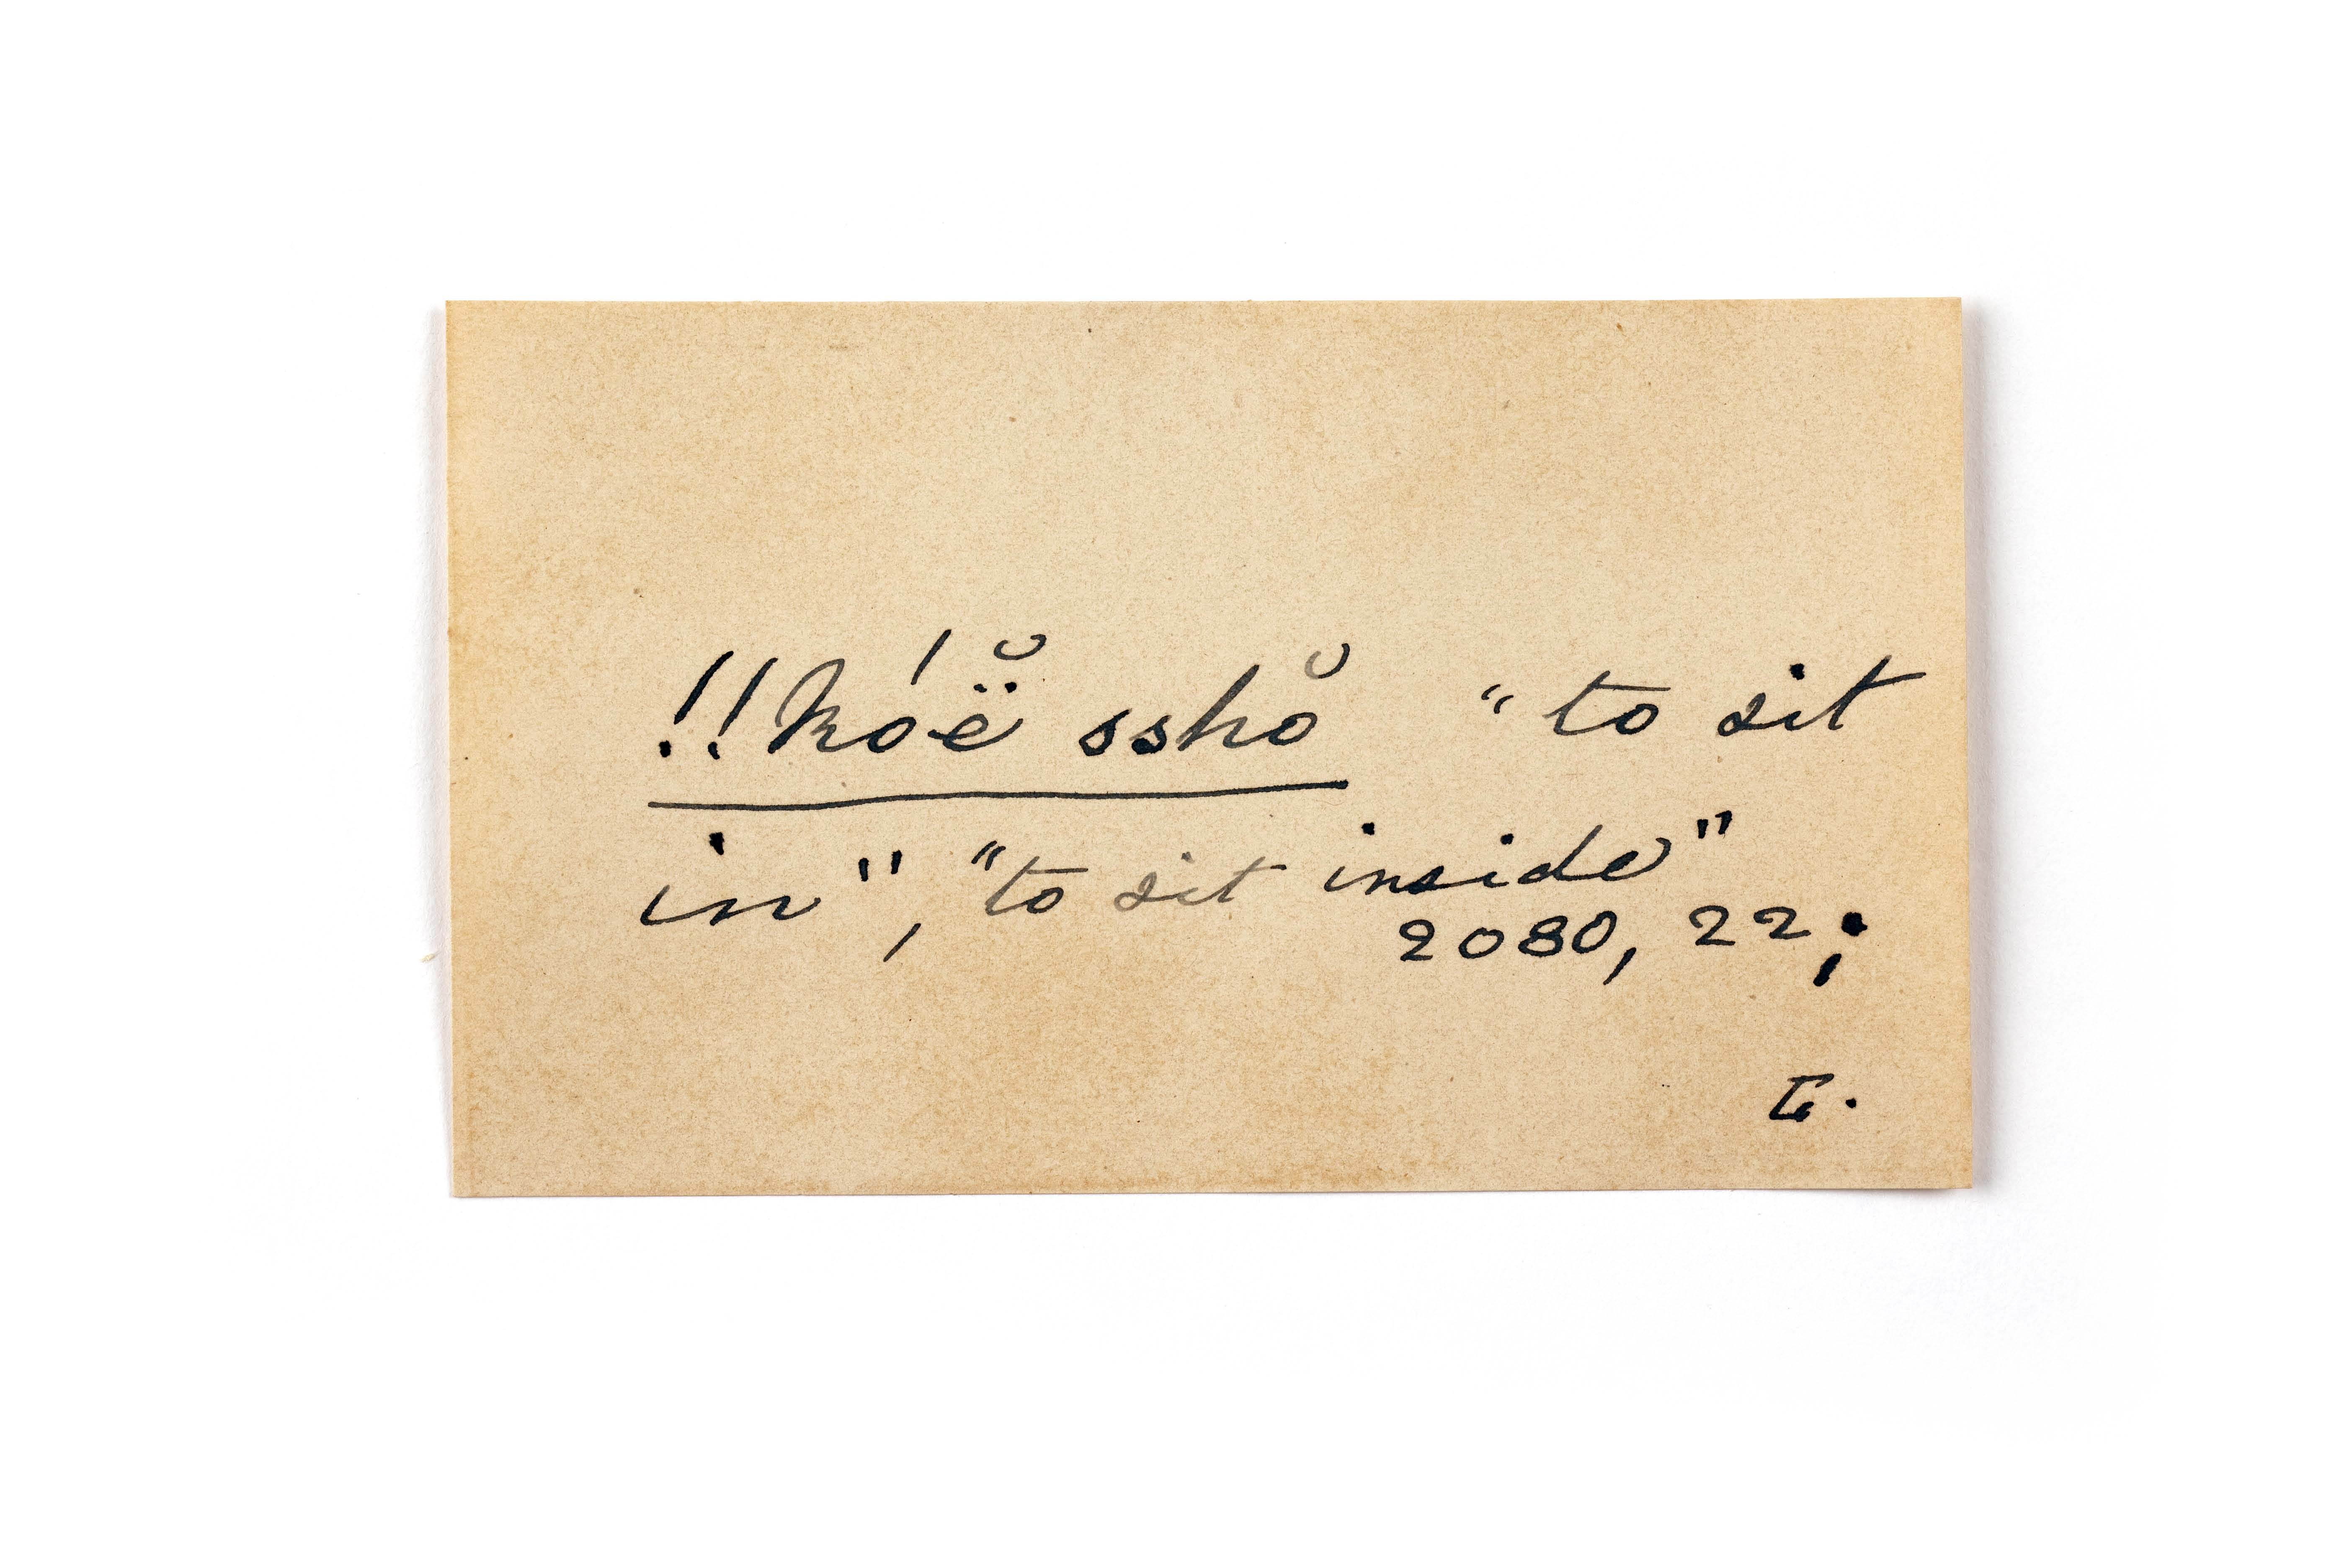 !!kóë̆ sshŏ "to sit
in", "to sit inside"
2080, 22;